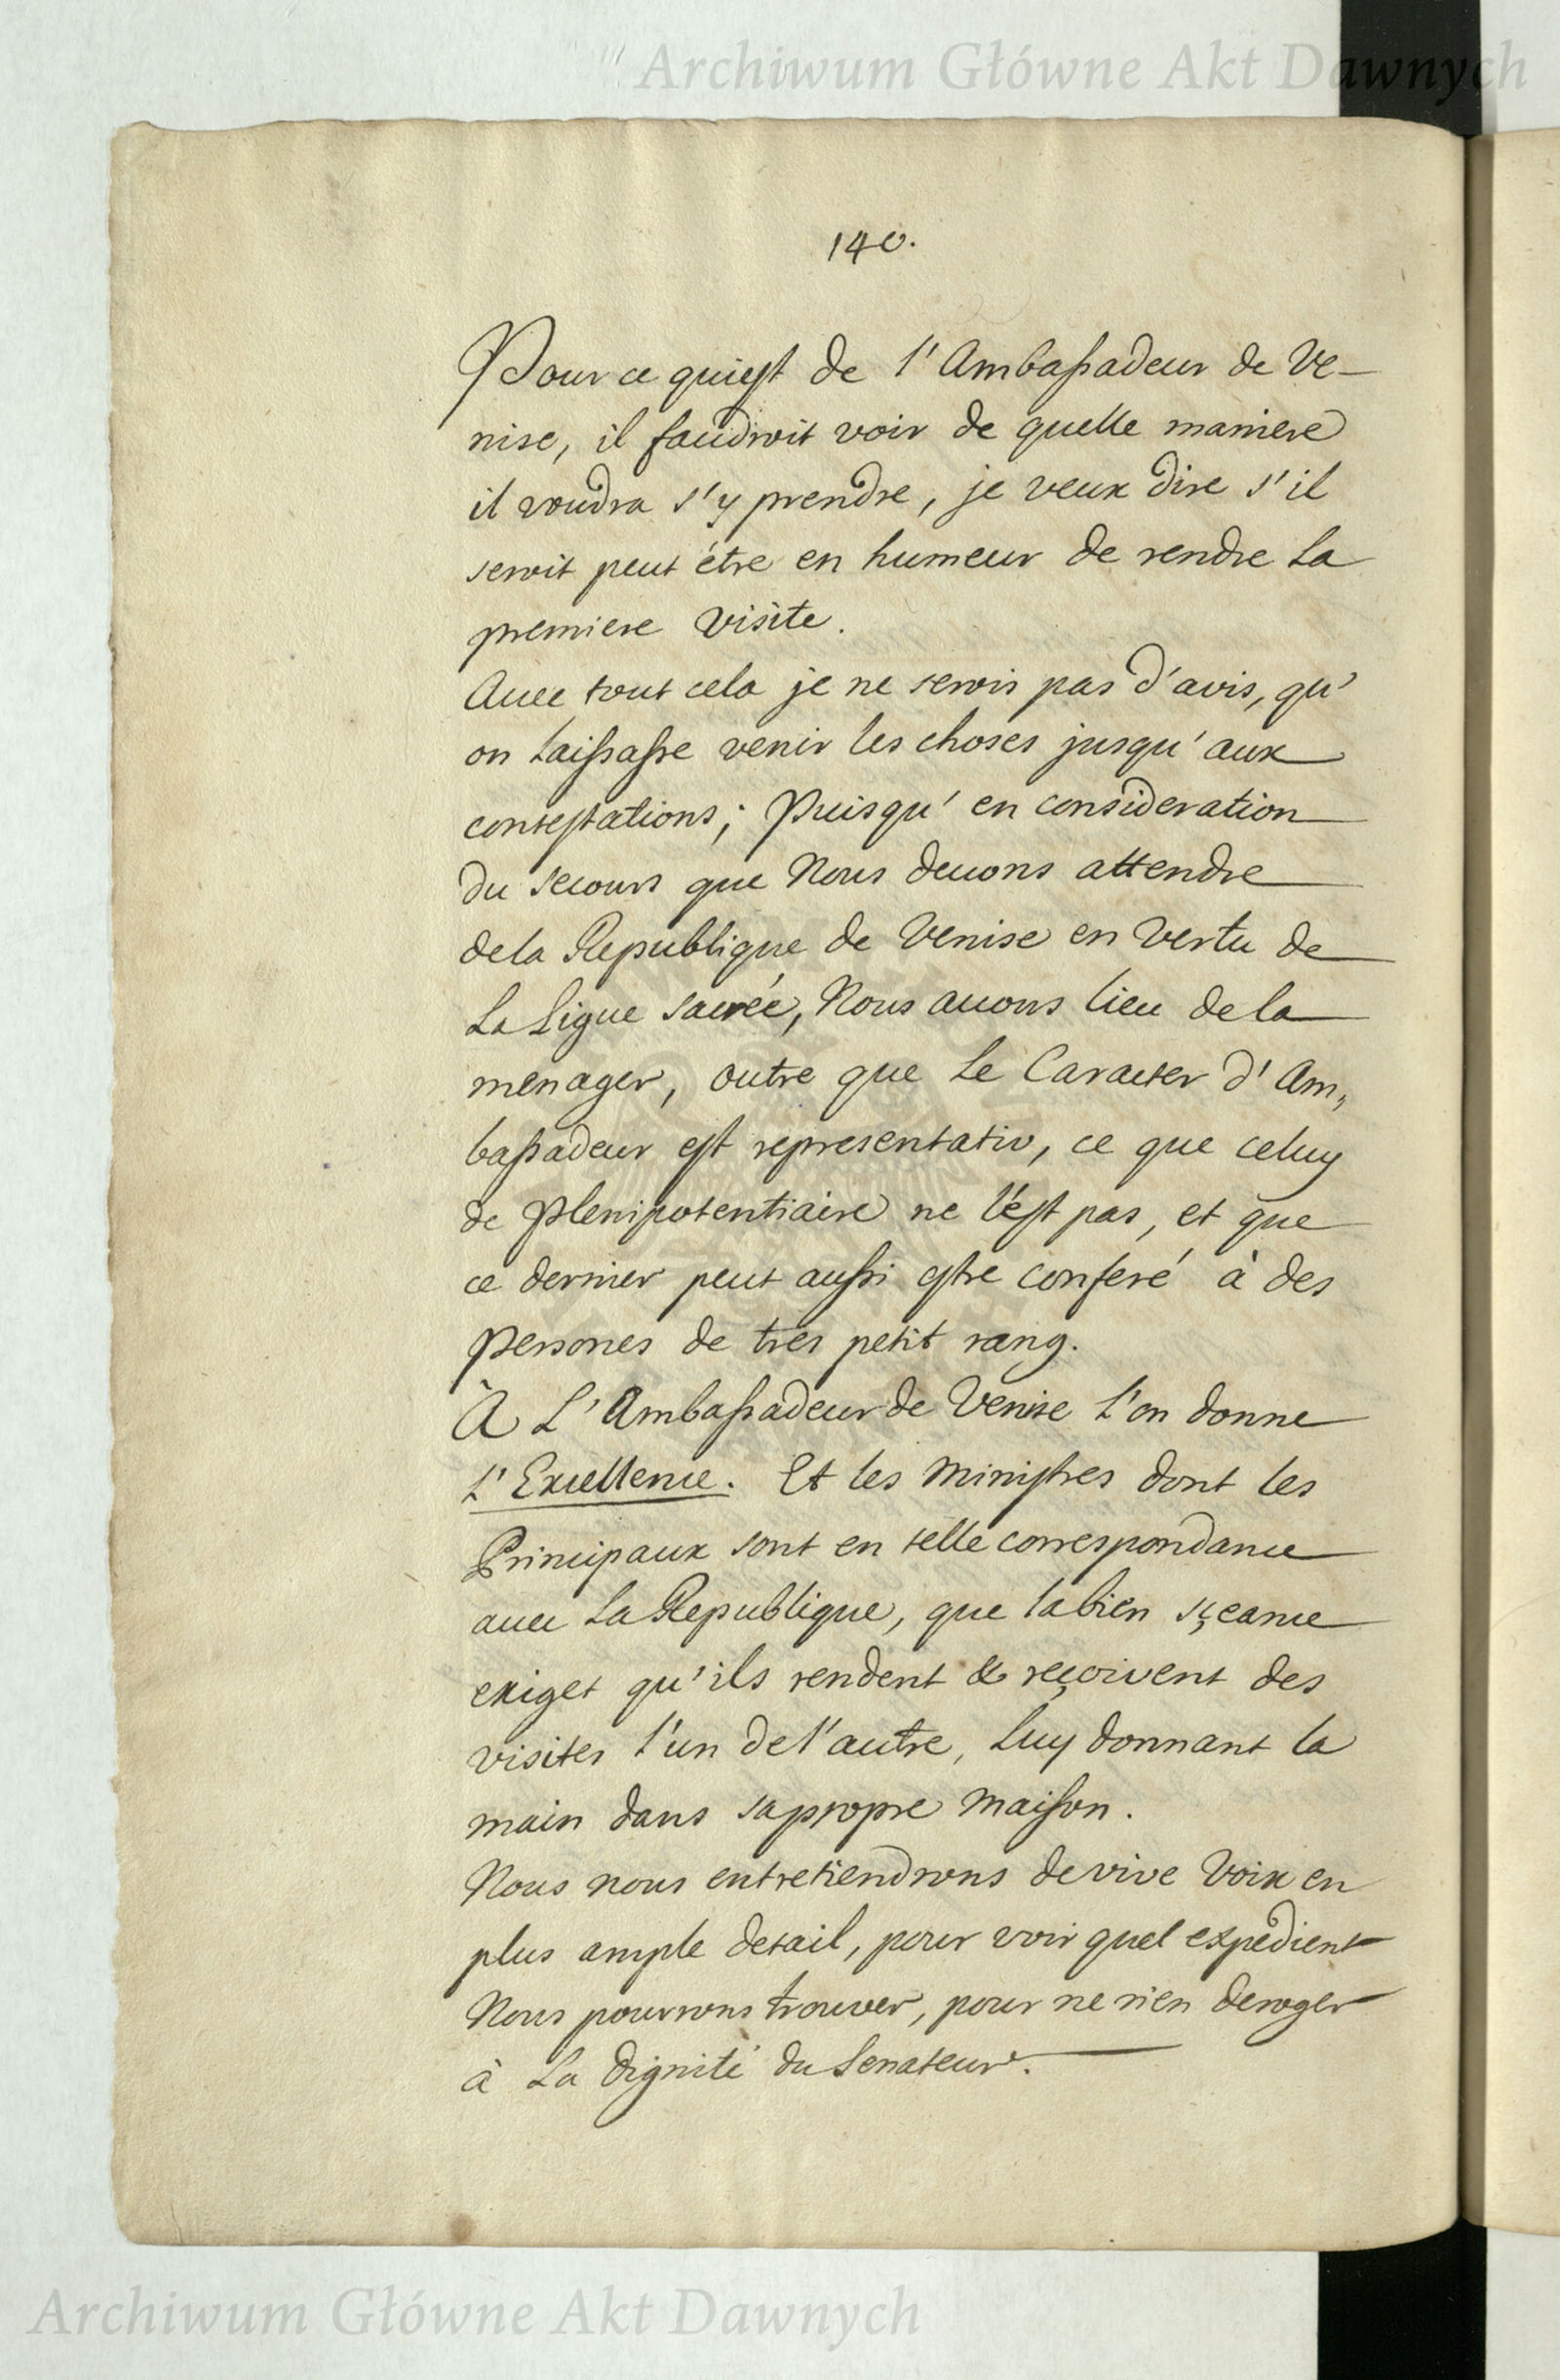 Archiwum Główne Akt Dawnych
140.
Pour ce qui est de l'Ambassadeur de Ve-
nise, il faudroit voir de quelle maniere
il voudra s'y prendre, je veux dire s'il
seroit peut étre en humeur de rendre La
premiere visite.
Avec tout cela je ne serois pas d'avis, qu'
on Laissasse venir les choses jusqu'aux
contestations; Puisqu'en consideration
du secours que Nous devons attendre
de la Republique de Venise en vertu de
La Ligue sacrée, Nous avons lieu de la
menager, outre que Le Caracter d'Am,,
bassadeur est representativ, ce que celuy
de Plenipotentiaire ne l'est pas, et que
ce dernier peut aussi estre conferé à des
Persones de tres petit rang.
À L'Ambassadeur de Venise L'on donne
L'Excellence. Et les Ministres dont les
Principaux sont en telle correspondance
avec La Republique, que la bien sçeance
exiget qu'ils rendent & reçoivent des
visites l'un de l'autre, Luy donnant la
main dans sa propre Maison.
Nous nous entretiendrons de vive Voix en
plus ample detail, pour voir quel expedient
Nous pourrons trouver, pour ne rien deroger
à La Dignité du Senateur.
Archiwum Główne Akt Dawnych